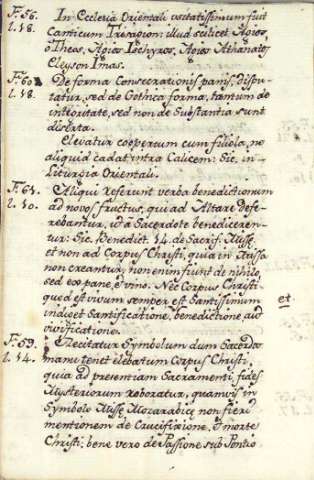 F. 56. In Ecclesia Orientali usitatissimum fuit
l. 18. Canticum Trisagion: illud scilicet Agios,
ò Theos, Agios Ischyros, Agios Athanatos
Eleyson Imas.
F. 60. De forma Consecrationis panis, dispu-
l. 18. tatur, sed de Gothica forma, tantum de
integritate, sed non de Substantia sunt
dicta.
Elevatur coopertum cum filiola, ne
aliquid cadat intra Calicem: Sic in
Liturgia Orientali.
F. 61. Aliqui referunt verba benedictionum
l. 10. ad novos fructus, qui ad Altare defe-
rebantur, ut a Sacerdote benediceren-
tur: Sic. Benedict. 14. de Sacrif. Missæ,
et non ad Corpus Christi, quia in Missa
non creantur, non enim fiunt de nihilo,
sed ex pane, et vino. Nec Corpus Christi
quod est vivum semper est Santissimum
indiget Santificatione, benedictione aut et
vivificatione.
F. 59. Recitatur Symbolum dum Sacerdos
l. 14. manu tenet elebatum Corpus Christi,
quia ad presentiam Sacramenti, fides
Mysteriorum roboratur, quamvis in
Symbolo Missæ Mozarabicæ non fieri
mentionem de Crucifixione, et morte
Christi; bene vero de Passione sub Pontio